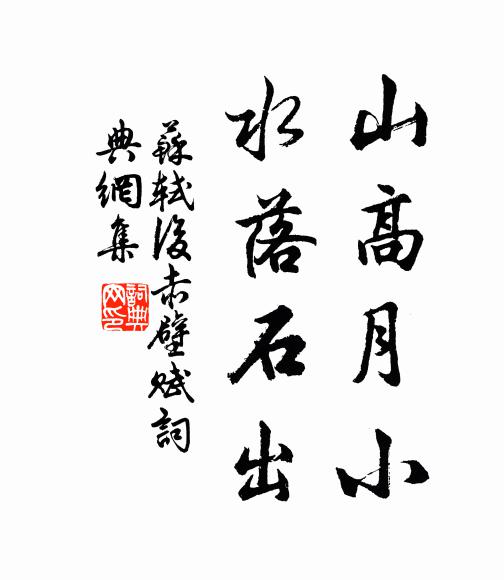 山高月小
水落石出
蘇軾後赤壁賦詞
典網集
詞典
网印